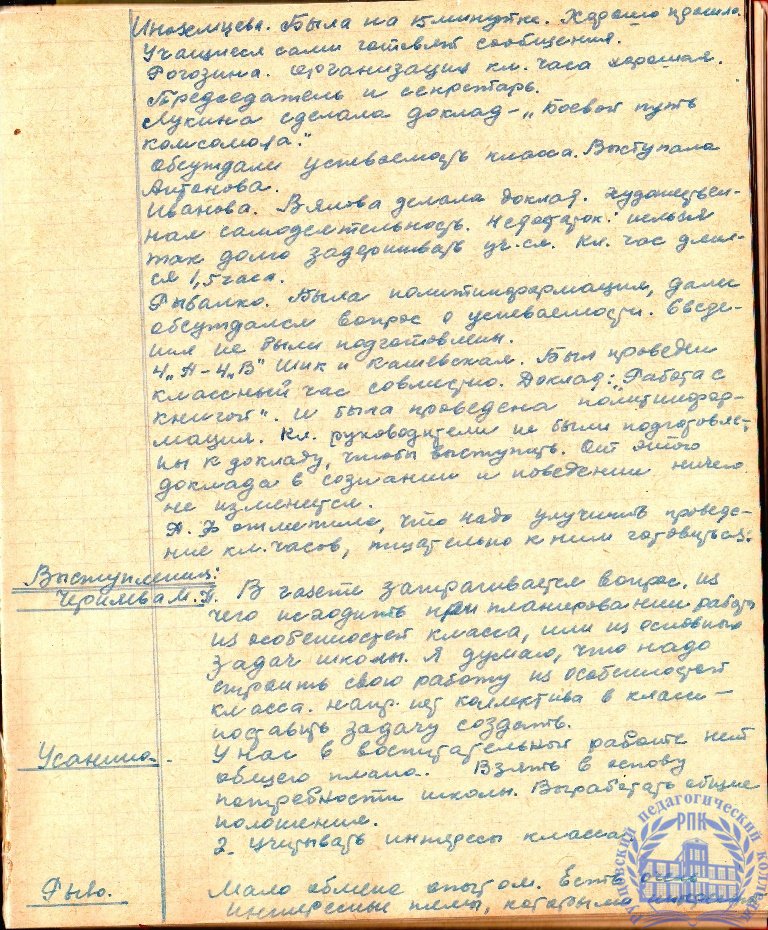 Иноземцева. Была на 15 минутке. Хорошо прошла.
Учащиеся сами готовят сообщения.
Рогозина. Организация кл. часа хорошая.
Председатель и секретарь.
Лукина сделала доклад – „Боевой путь
комсомола."
Обсуждали успеваемость класса. Выступала
Антонова.
Иванова. Вялова делала доклад. Художествен-
ная самодеятельность. Недостаток: нельзя
так долго задерживать уч-ся. Кл. час длил-
ся 1,5 часа.
Рывалко. Была политинформация, далее
обсуждался вопрос о успеваемости. Сведе-
ния не были подготовлены.
4„А – 4„В" Шик и Кашевская. Был проведен
классный час совместно. Доклад: „Работа с
книгой". И была проведена политинфор-
мация. Кл. руководители не были подготовле-
ны к докладу, чтобы выступить. От этого
доклада в сознании и поведении ничего
не изменится.
А. Б отметила, что надо улучшить проведе-
ние кл. часов, тщательно к ним готовиться.
Выступления:
М. В газете затрагивается вопрос, из
чего исходить при планировании работы
из особенностей класса, или из основных
задач школы. Я думаю, что надо
строить свою работу из особенностей
класса. Напр. нет коллектива в классе –
поставить задачу создать.
У нас в воспитательной работе нет
общего плана. Взять в основу
потребности школы. Выработать общие
положения.
2. Учитывать интересы класса.
Мало обмена опытом. Есть очень
интересные темы, которыми
Рузовский педагогический колледж
РПК